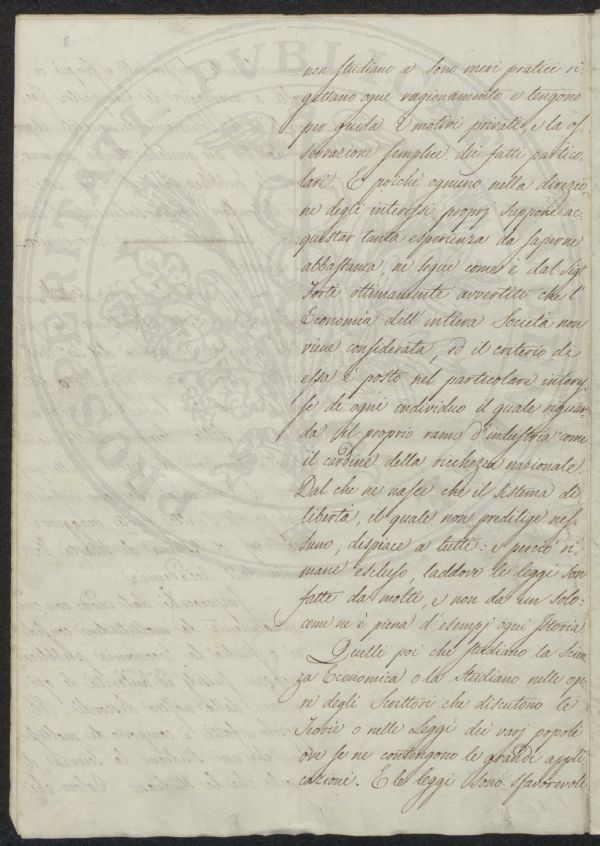 non studiano e sono meri pratici ri-
gettano ogni ragionamento e tengono
per guida i motivi privati, e la os-
servazione semplice dei fatti partico-
lari. E poichè ognuno nella direzio-
ne degli interessi proprj suppone ac-
quistar tanta esperienza da saperne
abbastanza, ne segue come è dal Sig.
Forti ottimamente avvertito che l'
Economia dell'intiera Società non
viene considerata, ed il criterio di
essa è posto nel particolare interes-
se di ogni individuo il quale riguar-
da il proprio ramo d'industria come
il cardine della ricchezza nazionale.
Dal che ne nasce che il sistema di
libertà, il quale non predilige nes-
suno, dispiace a tutti: e perciò ri-
mane escluso, laddove le leggi son
fatte da molti, e non da un solo:
come ne è piena d'esempj ogni Istoria.
Quelli poi che studiano la Scien-
za Economica o la studiano nelle ope-
re degli Scrittori che discutono le
Teorie o nelle Leggi dei varj popoli
ove se ne contengono le grandi appli-
cazioni. E le leggi sono sfavorevoli
PROSPERITATI PVBLIC